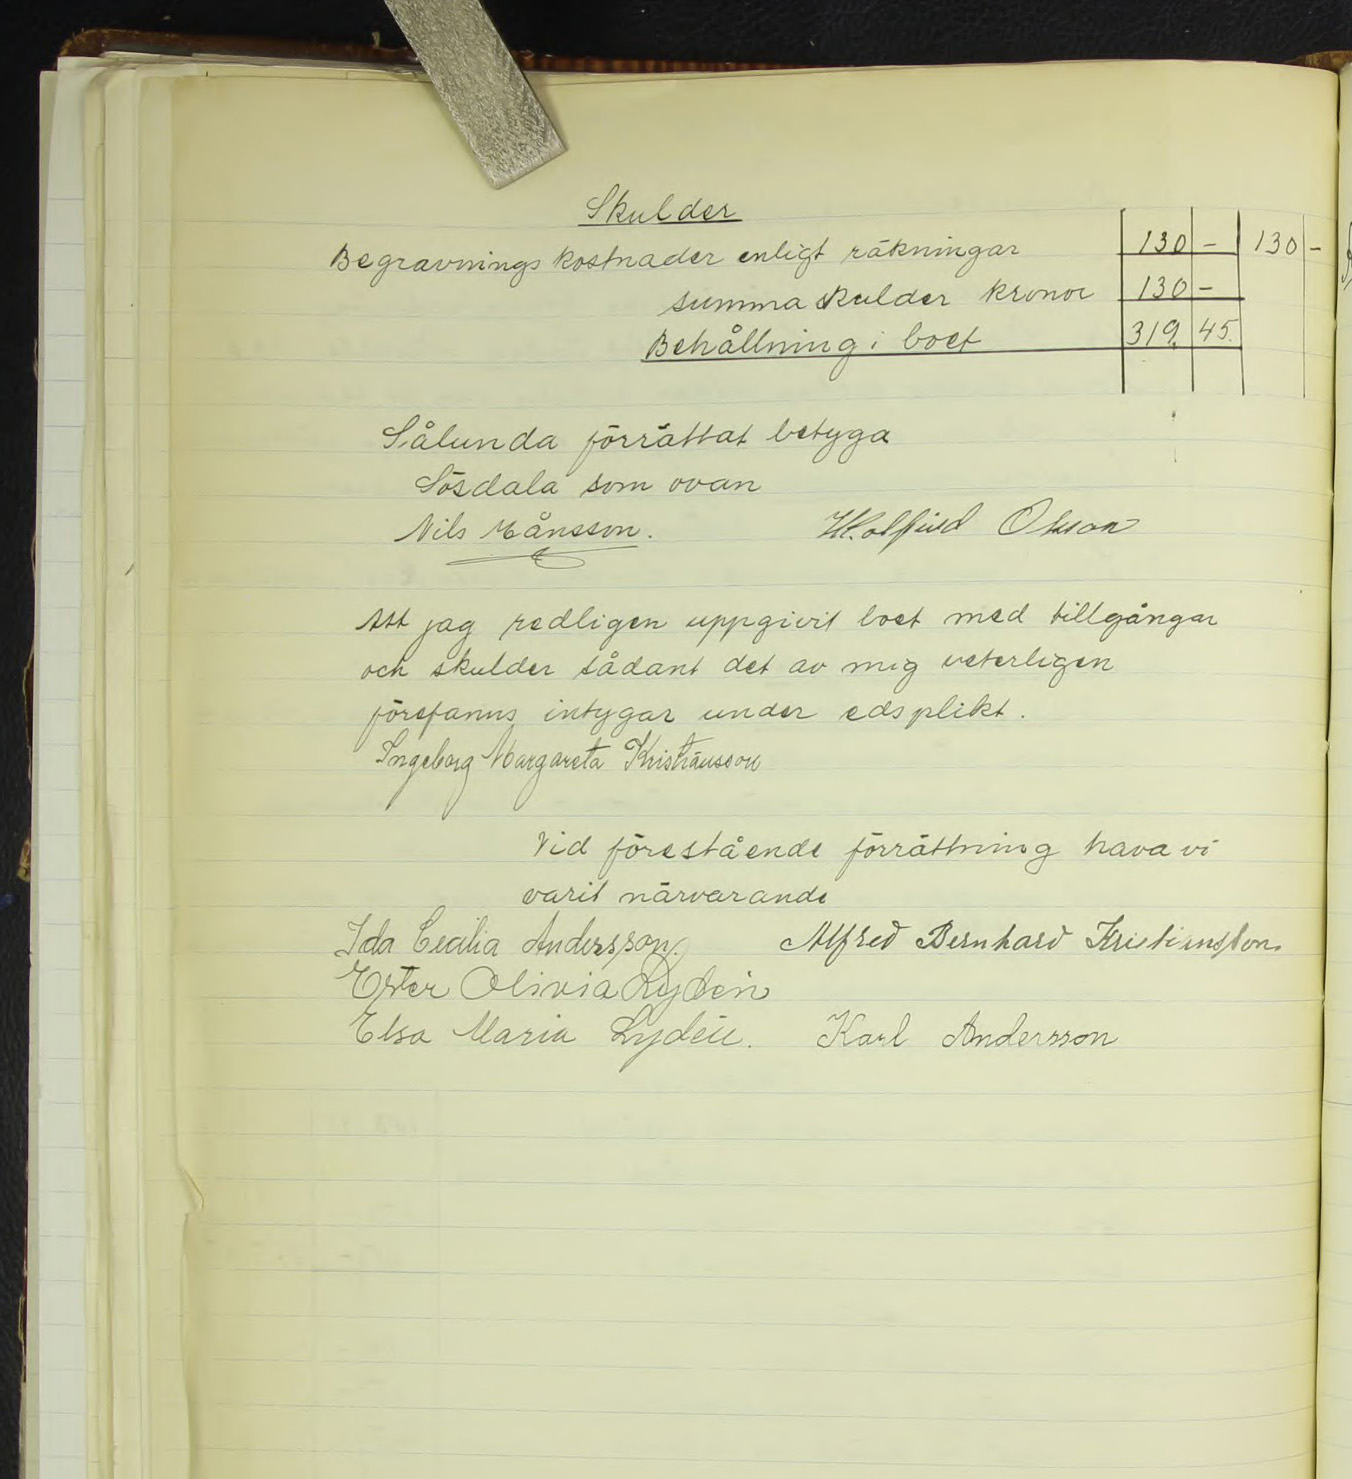 Skulder
Begravningskostnader enligt räkningar 130 - 130 -
summa skulder kronor 130 -
Behållning i boet 319. 45.
Sålunda förrättat betyga
Sösdala som ovan
Nils Månsson. Olsson
Att jag redligen uppgivit boet med tillgångar
och skulder sådant det av mig veterligen
förefanns intygar under edsplikt.
Ingeborg Margareta Kristiansson
Vid förestående förrättning hava vi
varit närvarande
Ida Cecilia Andersson. Alfred Bernhard Kristiansson
Ester Olivia Rydén
Elsa Maria Rydén. Karl Andersson